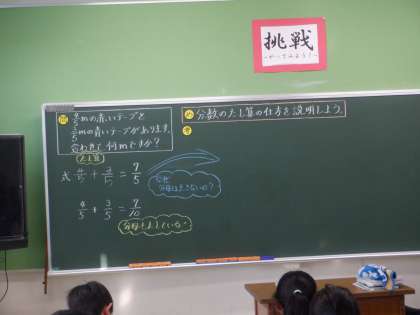 挑戦
問 4/5mの青いテープと
3/5mの青いテープがあります。
合わせて何mですか?
たし算
式 4/5 + 3/5 = 7/5
4/5 + 3/5 = 7/10
分母もたしている
なぜ
分母はたさないの?
め 分数のたし算の仕方を説明しよう。
考